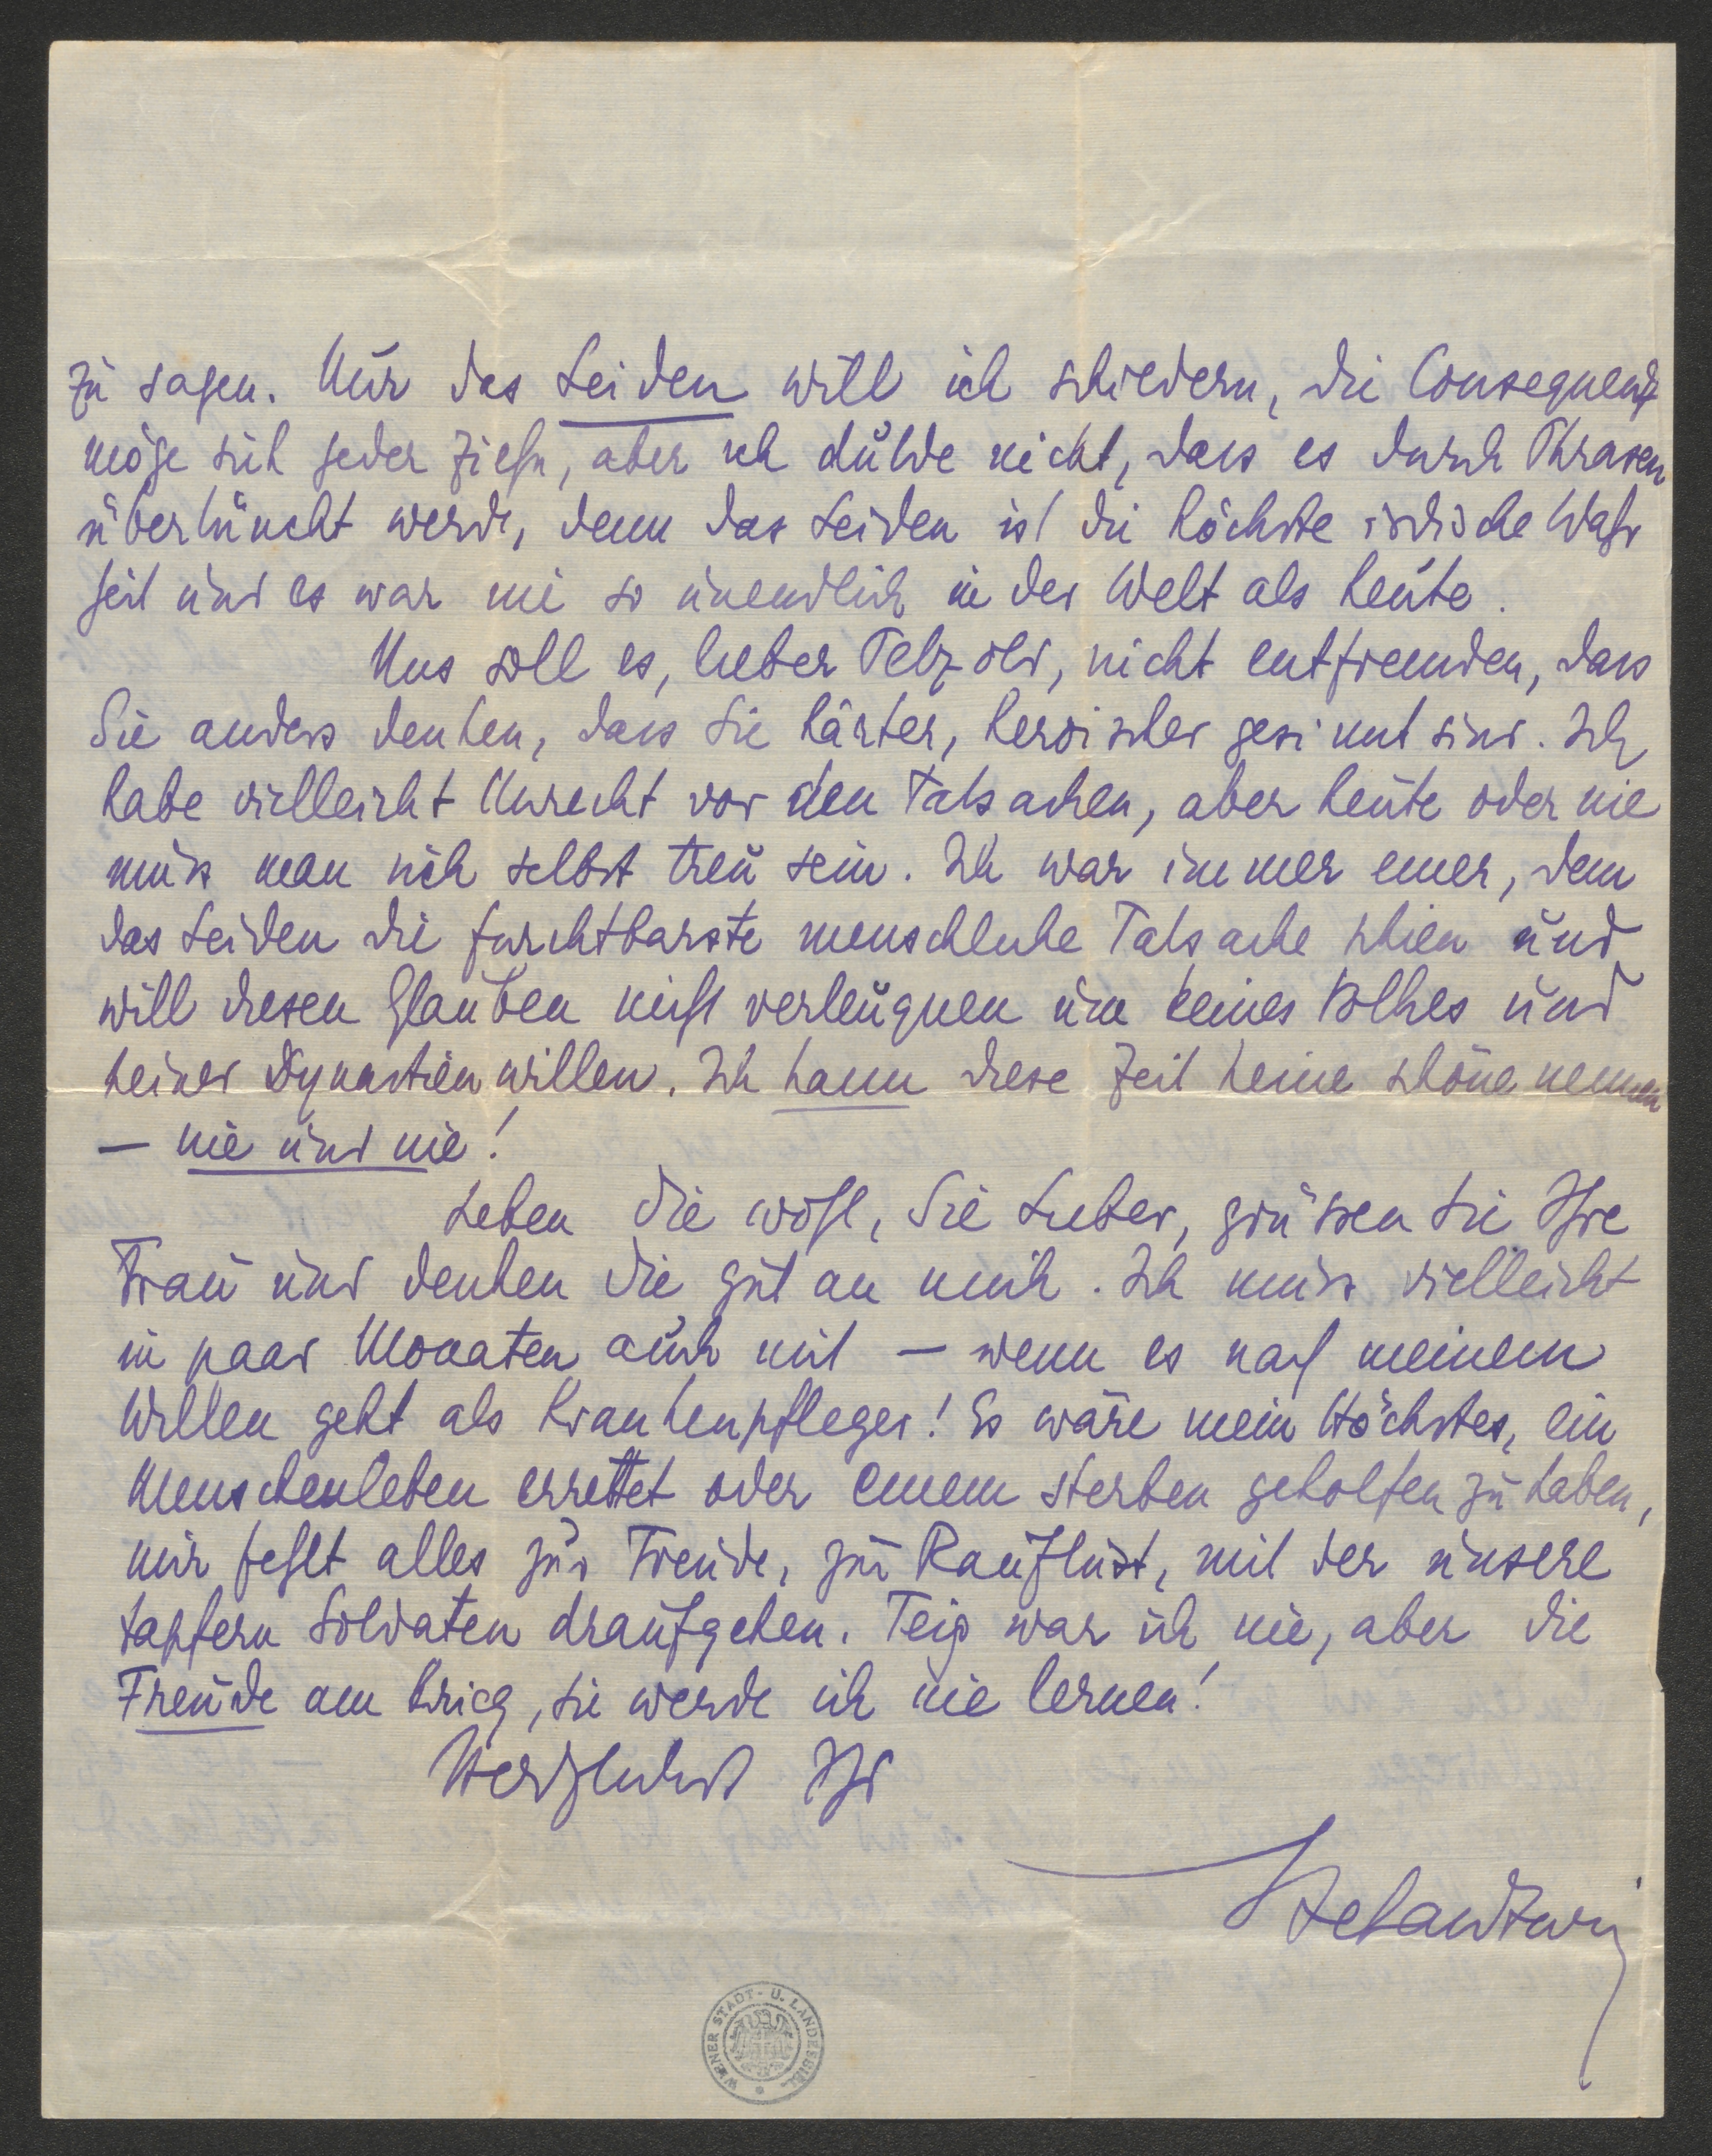 zu sagen. Nur das Leiden will ich schildern, die Consequenz
möge sich jeder ziehn, aber ich dulde nicht, dass es durch Phrasen
übertüncht werde, denn das Leiden ist die höchste irdische Wahr
heit und es war nie so unendlich in der Welt als heute.
Uns soll es, lieber Petzold, nicht entfremden, dass
Sie anders denken, dass Sie härter, heroischer gesinnt sind. Ich
habe vielleicht Unrecht vor den Tatsachen, aber heute oder nie
muss man sich selbst treu sein. Ich war immer einer, dem
das Leiden die furchtbarste menschliche Tatsache schien und
will diesen Glauben nicht verleugnen um keines Volkes und
keiner Dynastien willen. Ich kann diese Zeit keine schöne nennen
— nie und nie!
Leben Sie wohl, Sie Lieber, grüssen Sie Ihre
Frau und denken Sie gut an mich. Ich muss vielleicht
in paar Monaten auch mit — wenn es nach meinem
Willen geht als Krankenpfleger! Es wäre mein Höchstes, ein
Menschenleben errettet oder einem sterben geholfen zu haben,
mir fehlt alles zur Freude, zur Rauflust, mit der unsere
tapfern Soldaten draufgehen. Feig war ich nie, aber die
Freude am Krieg, sie werde ich nie lernen!
Herzlichst Ihr
Stefan Zweig
WIENER STADT- U. LANDESBIBL.